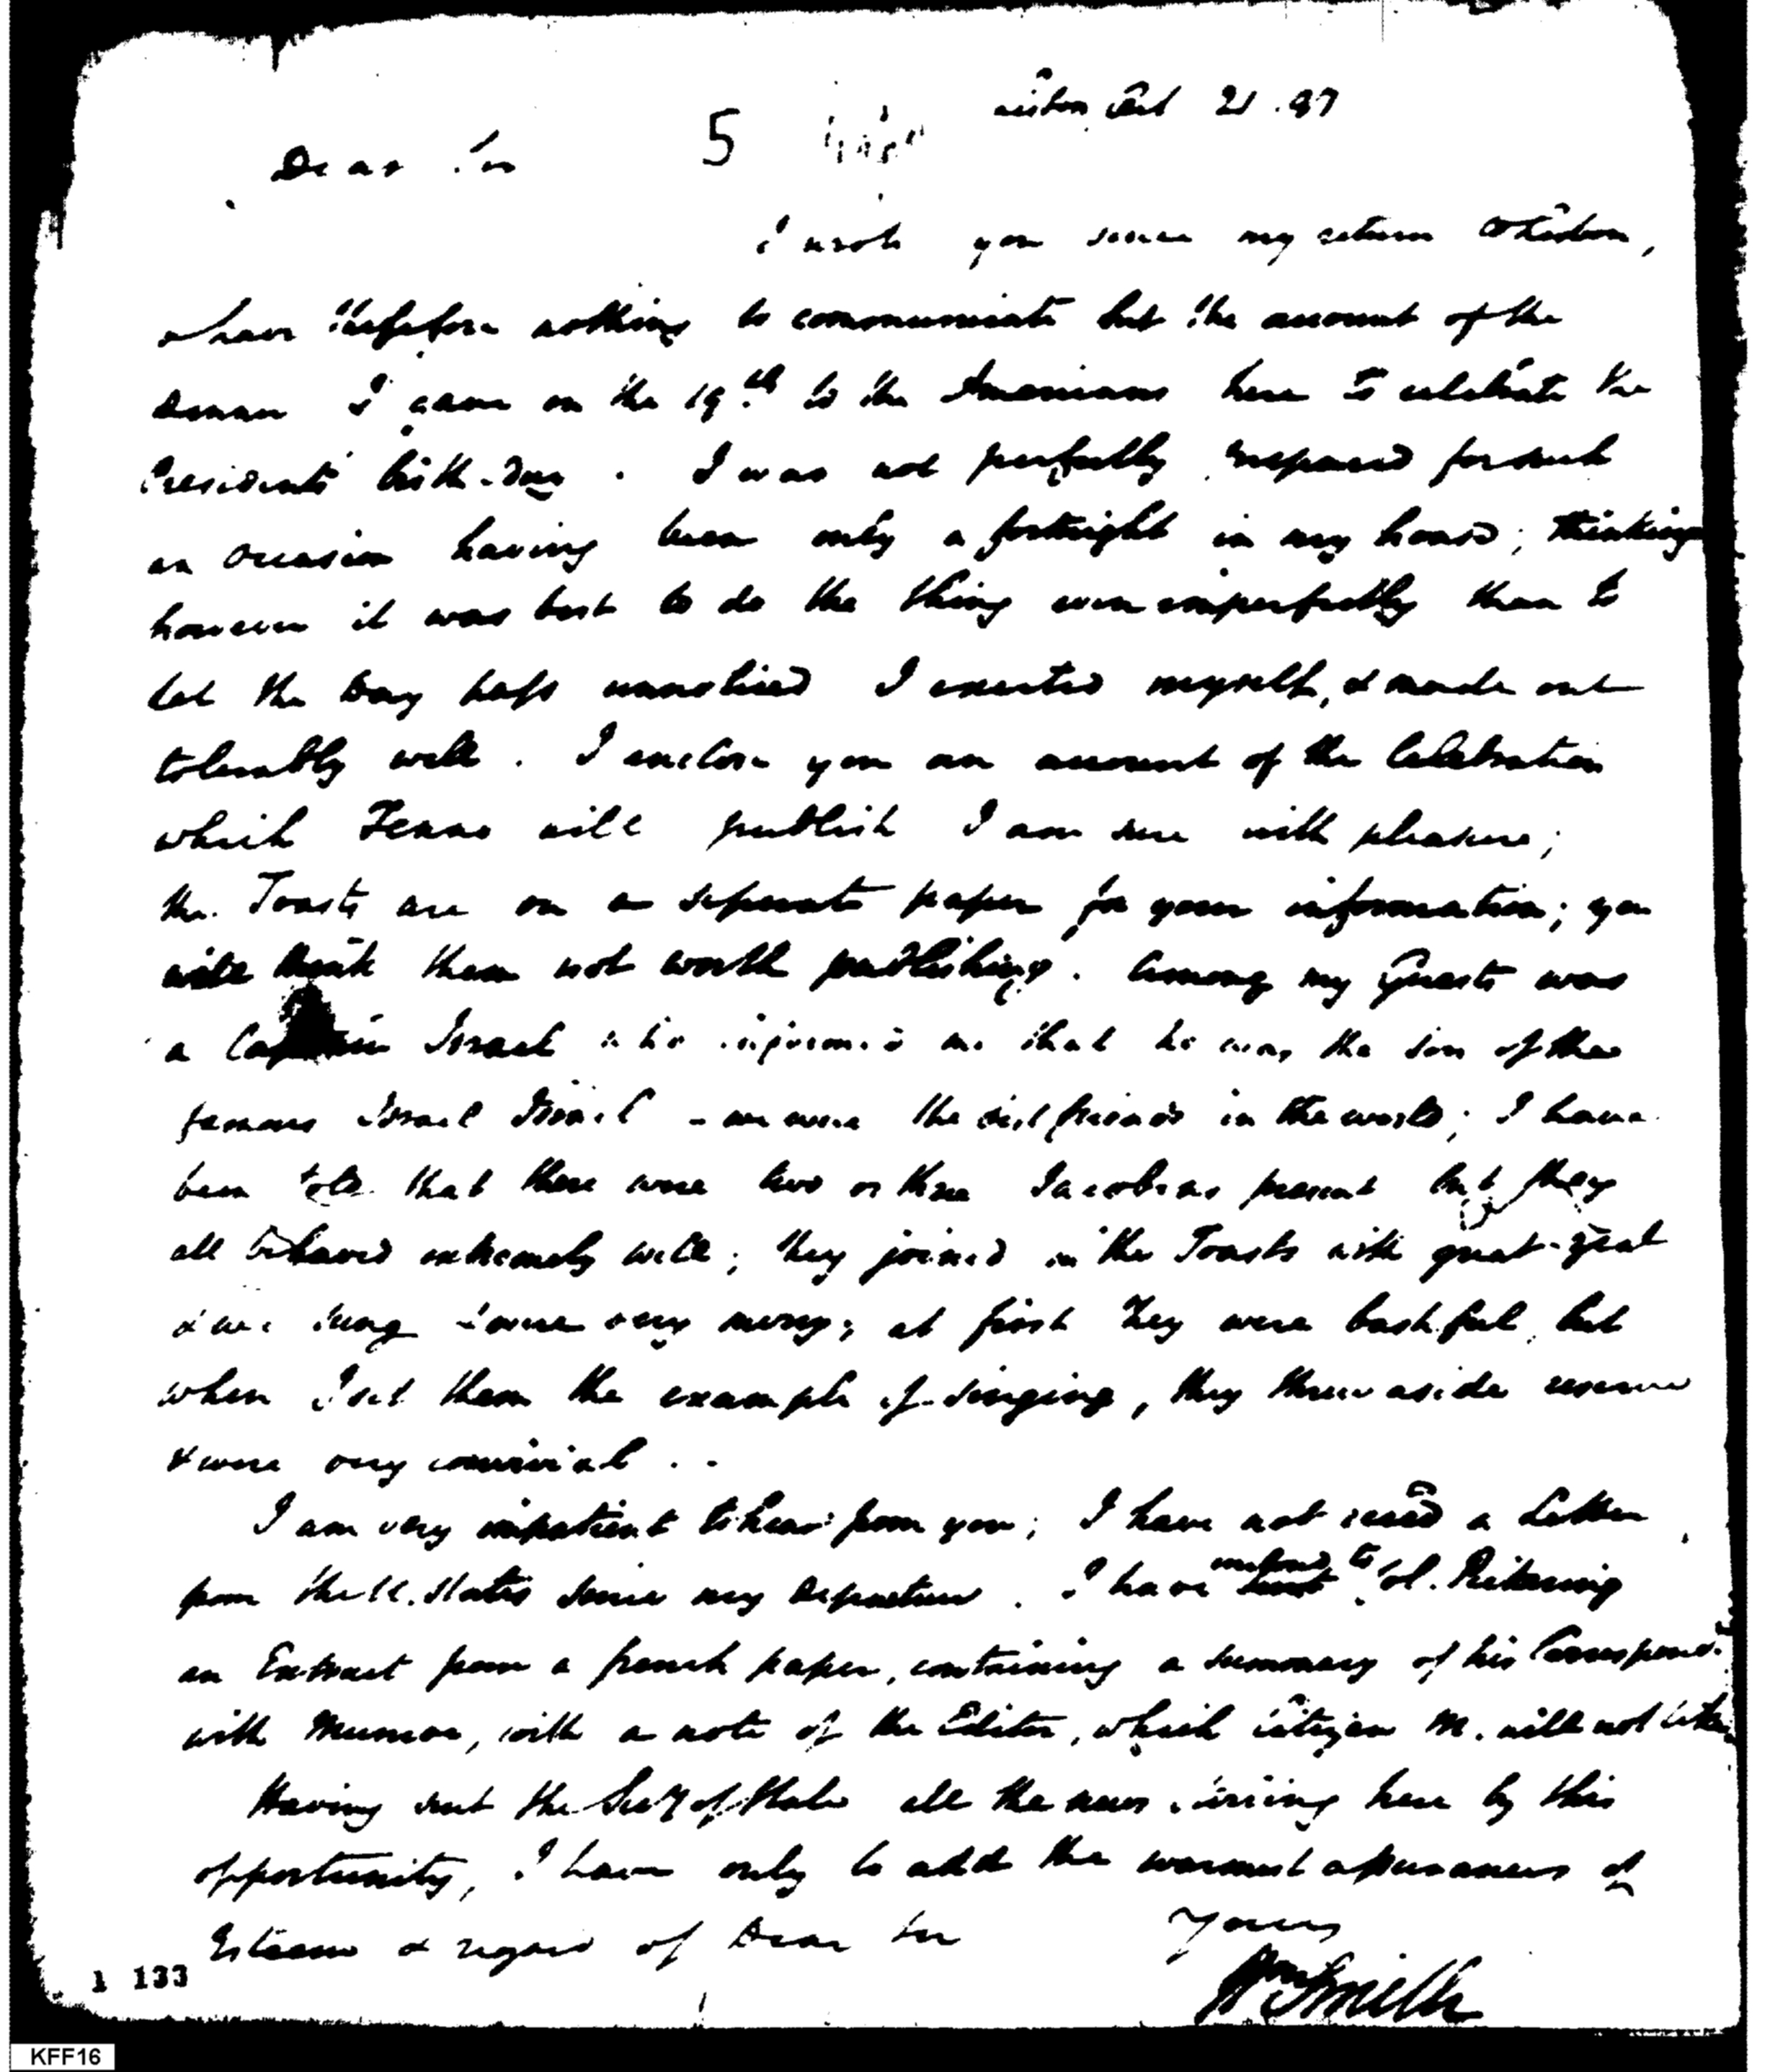 Lisbon Oct 21. 97
Dear Sir 5
I wrote you since my return to Lisbon,
& have therefore nothing to communicate but the account of the
dinner I gave on the 19.th to the Americans here to celebrate the
Presidents birth-day. I was not perfectly prepared for such
an occasion having been only a fortnight in my house; thinking
however it was best to do the thing even imperfectly than to
let the Day pass unnoticed I exerted myself, & made out
tolerably well. I enclose you an account of the Celebration
which Fenno will publish I am sure with pleasure;
the Toasts are on a seperate paper for your information; you
will think them not worth publishing. Among my Guests was
a Captain Israel who informed me that he was the son of the
famous Israel Israel - we were the best friends in the world; I have
been told that there were two or three Jacobins present but they
all behaved extremely well; they joined in the Toasts with great zeal
& we sung & were very merry; at first they were bashful, but
when I set them the example of singing, they threw aside reserve
& were very convivial..
I am very impatient to hear from you; I have not recd a Letter
from the U. States since my departure. I have enclosed to Col. Pickering
an Extract from a french paper, containing a summary of his Correspond.
with Munroe, with a note of the Editor, which Citizen M. will not like
Having sent the Secy of State all the news stirring here by this
opportunity, I have only to add the warmest assurances of
Esteem & regard of Dear Sir Yours
Wm Smith
1 133
KFF16